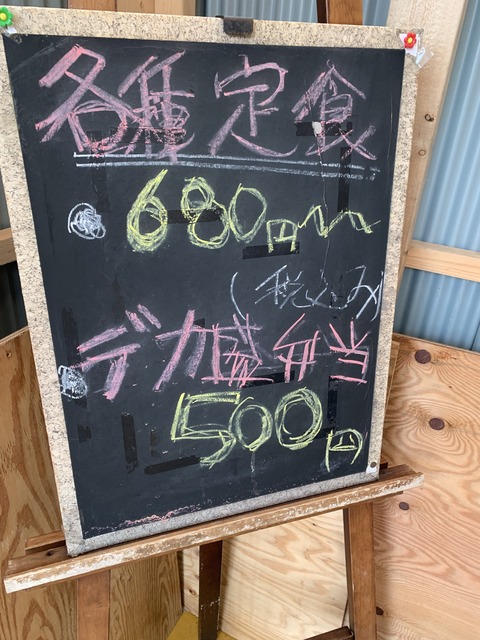 各種定食
680円〜
(税込み)
デカ盛弁当
500円